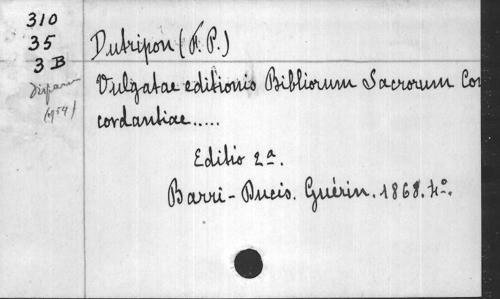 310
35
3 B
Disparu
(1954)
Dutripon (F. P.)
Vulgatae editionis Bibliorum Sacrorum Con
cordantiae.....
Editio 2a.
Barri-Ducis. Guérin. 1868. 4o.